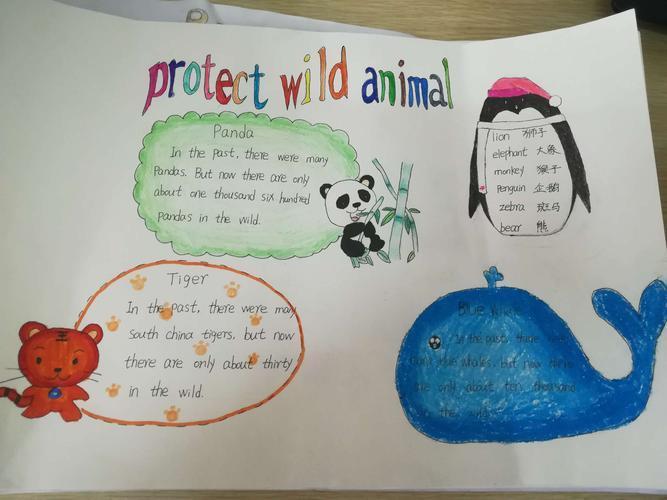 protect wild animal
Panda
In the past, there were many
Pandas. But now there are only
about one thousand six hundred
pandas in the wild.
lion 狮子
elephant 大象
monkey 猴子
Penguin 企鹅
zebra 斑马
bear 熊
Tiger
In the past, there were many
South china tigers, but now
there are only about thirty
in the wild.
Blue Whale
In the past, there were
blue whales, but now there
are only about ten thousand
in the wild.